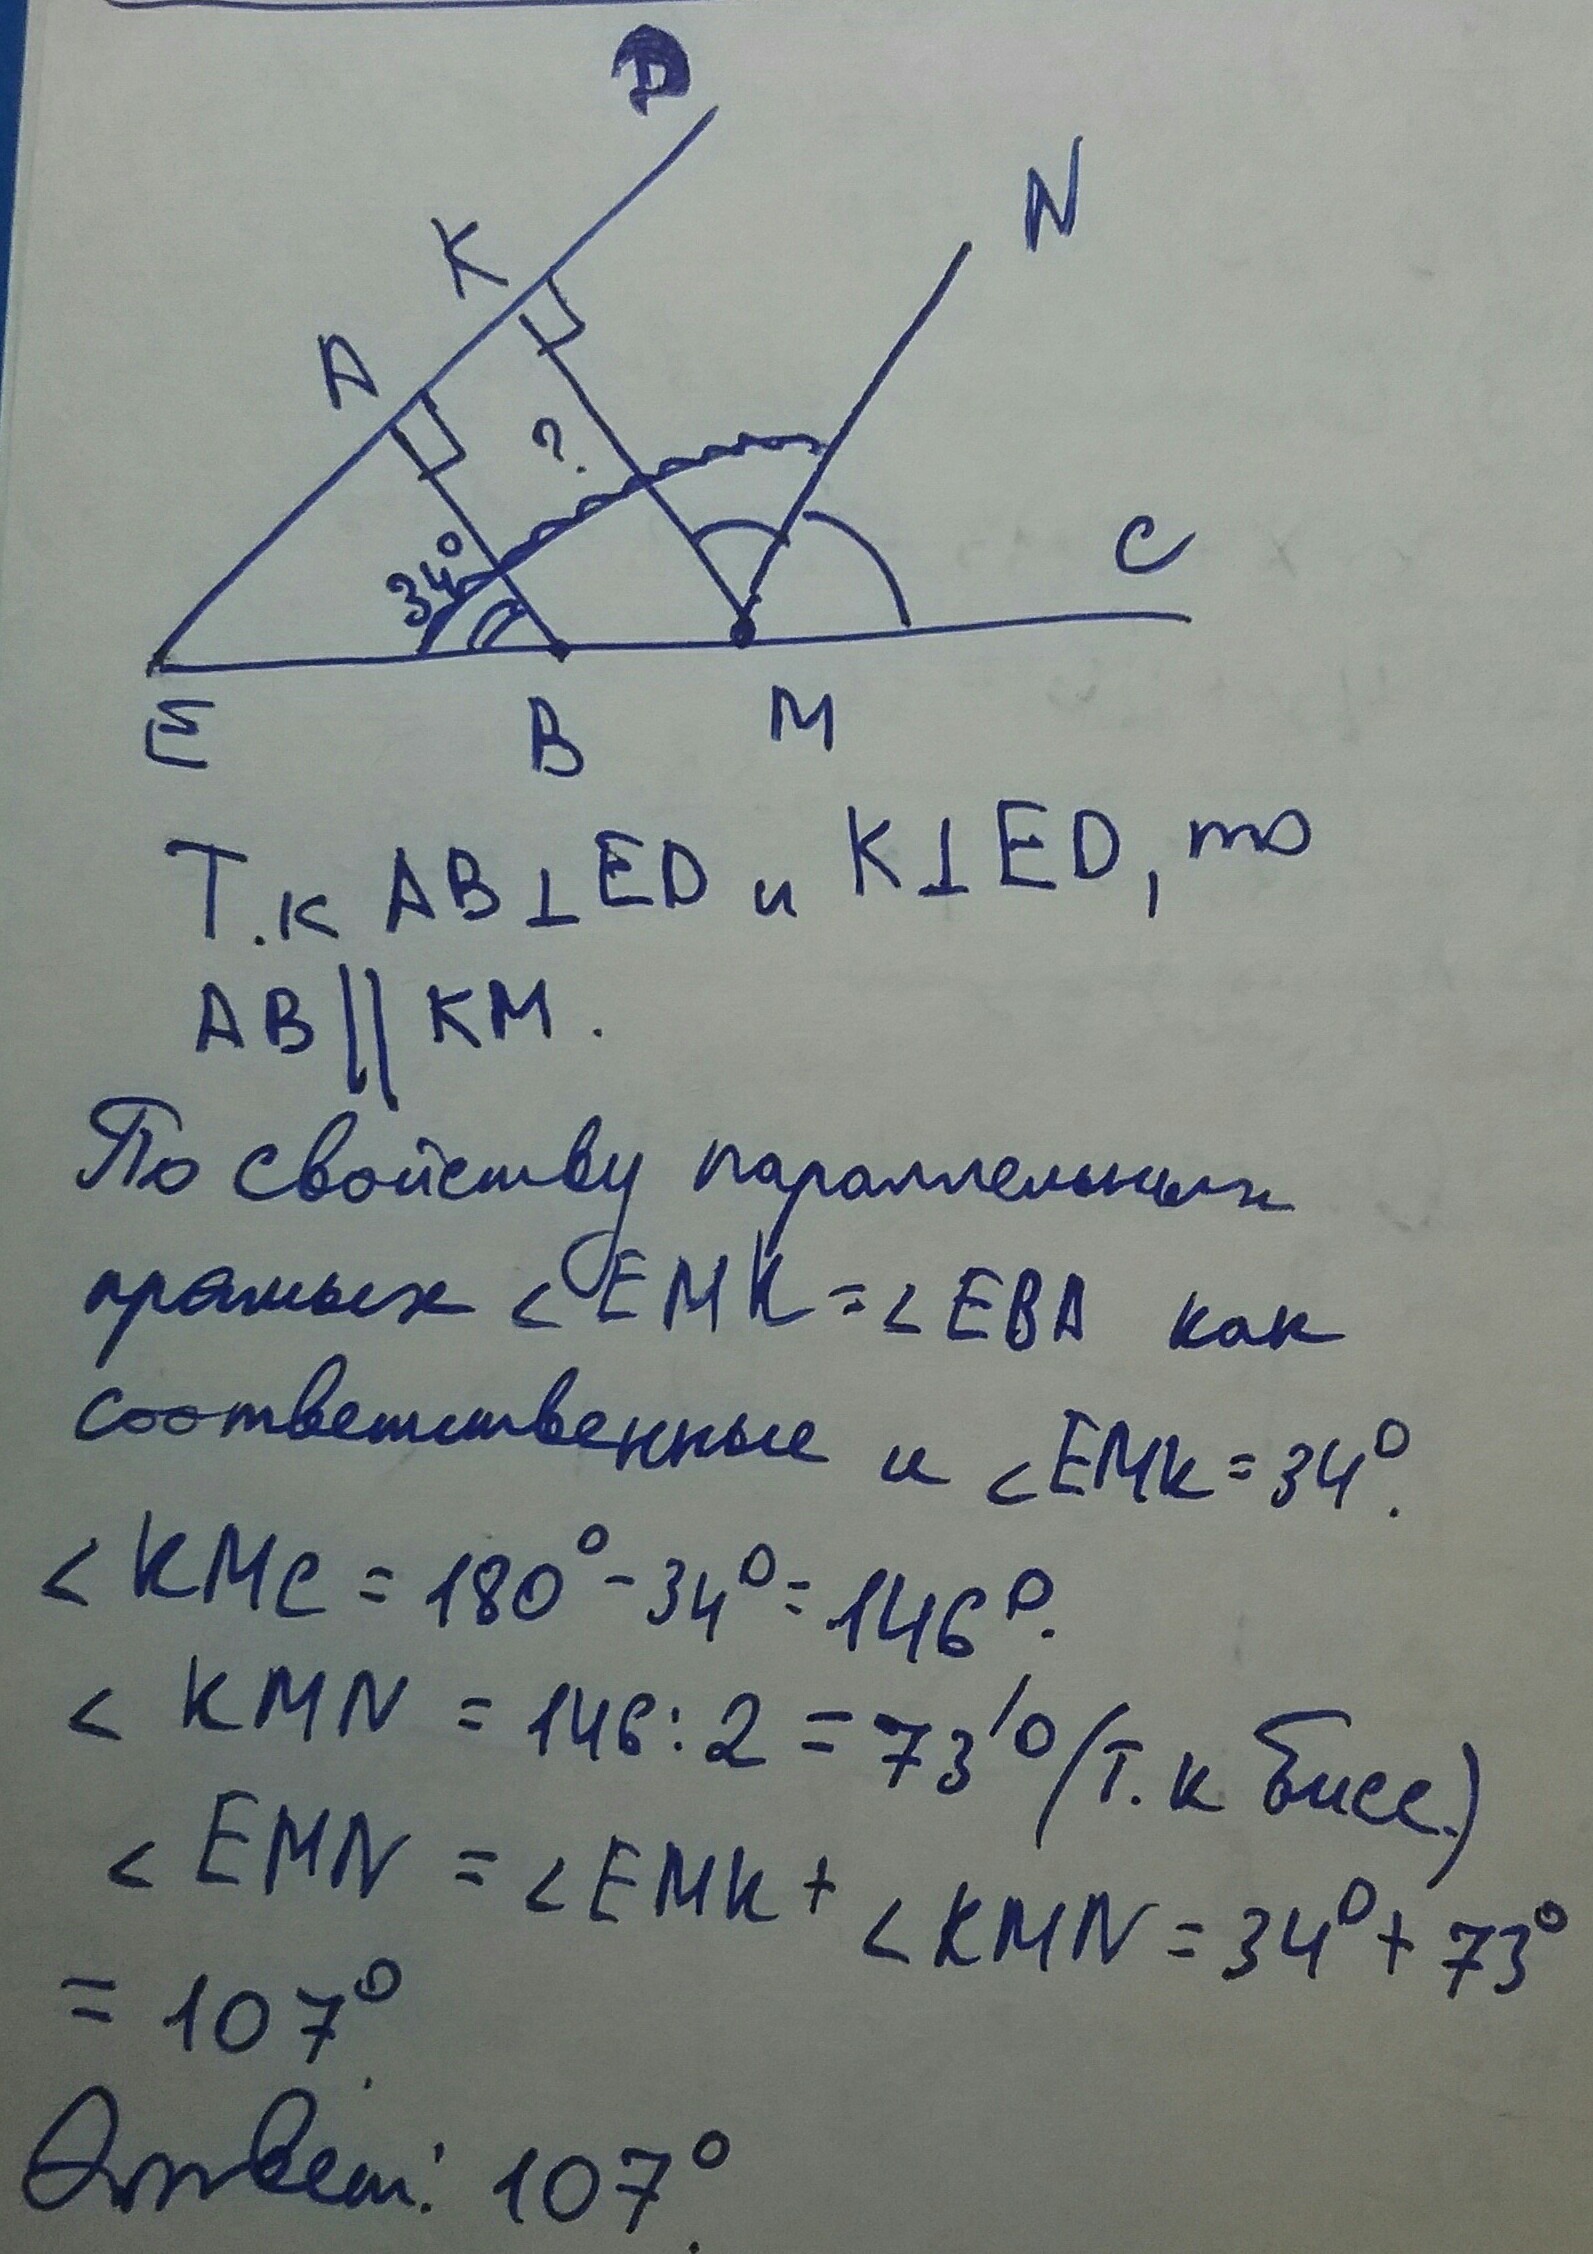 D
N
K
A
?
34°
C
E
B
M
Т.к AB⊥ED и K⊥ED, то
AB || KM.
По свойству параллельных
прямых <EMK = <EBA как
соответственные и <EMK = 34°.
<KMC = 180° - 34° = 146°.
<KMN = 146 : 2 = 73° (т.к бисс.)
<EMN = <EMK + <KMN = 34° + 73°
= 107°.
Ответ: 107°.